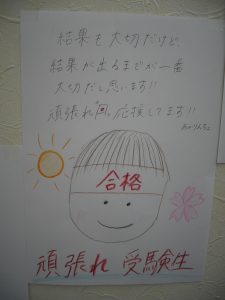 結果も大切だけど、
結果が出るまでが一番
大切だと思います!!
頑張れ 応援してます!!
合格
頑張れ 受験生